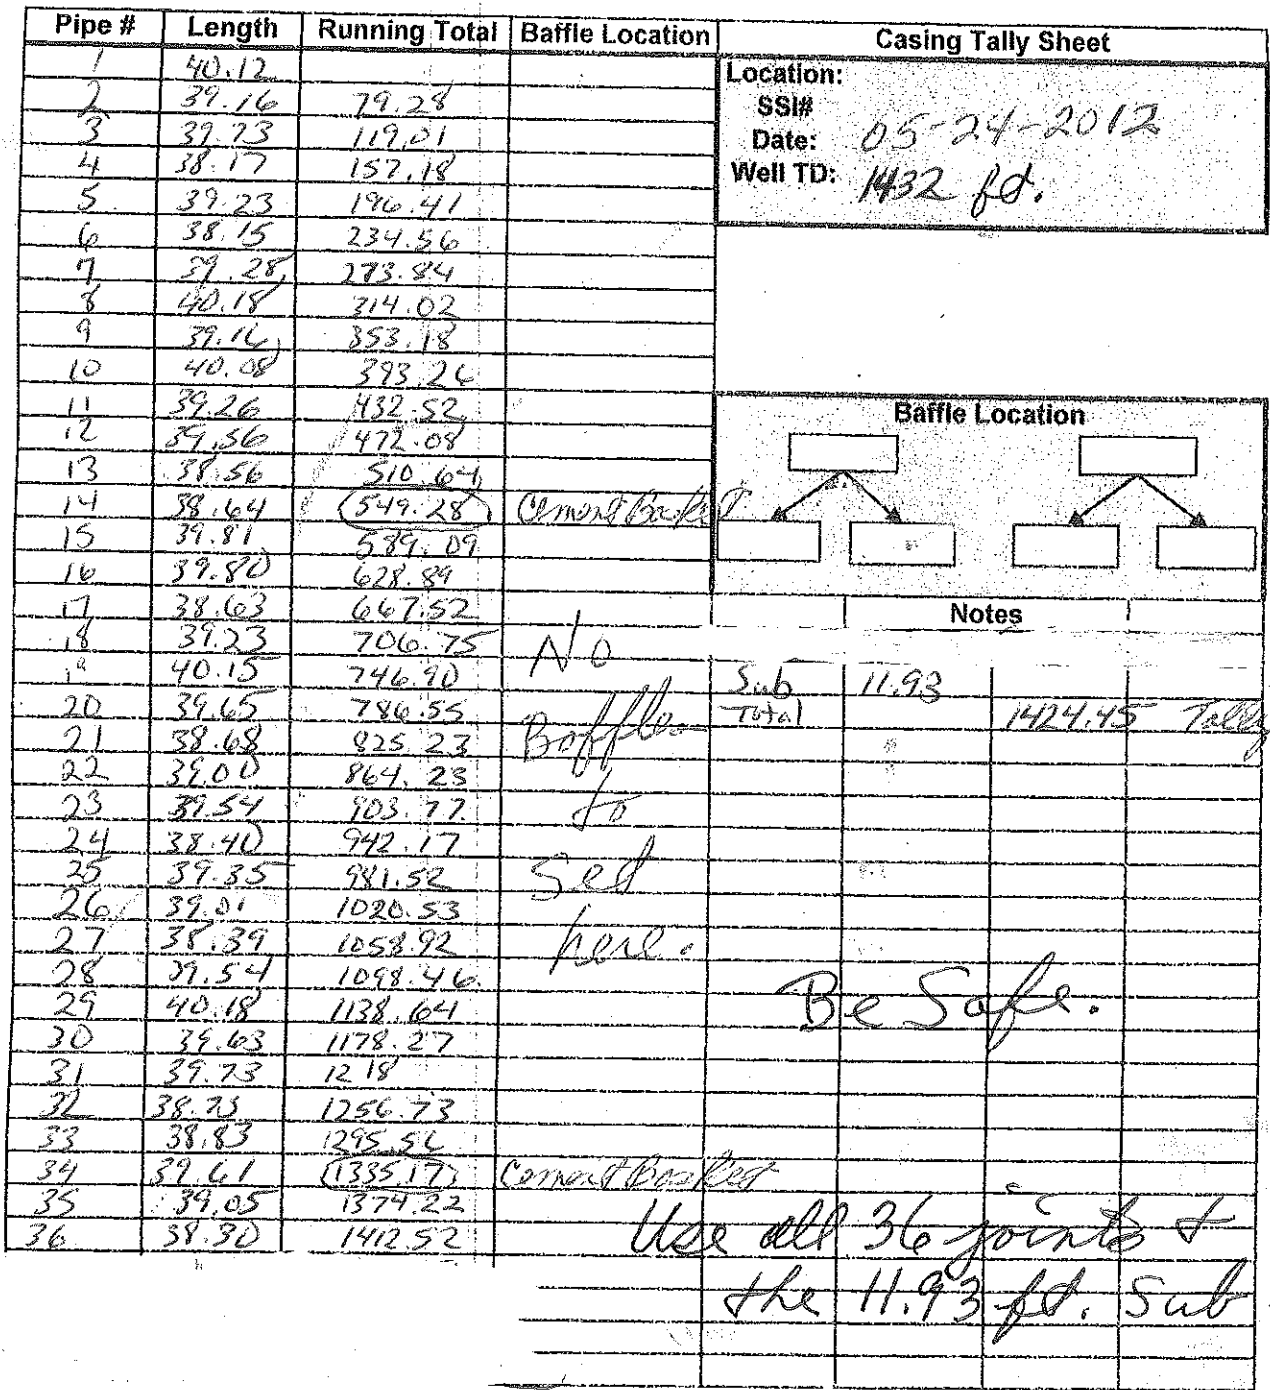 Pipe # Length Running Total Baffle Location Casing Tally Sheet
Location:
SSI#
Date: 05-24-2012
Well TD: 1432 ft.
1 40.12
2 39.16 79.28
3 39.73 119.01
4 38.17 157.18
5 39.23 196.41
6 38.15 234.56
7 39.28 273.84
8 40.18 314.02
9 39.16 353.18
10 40.08 393.26
11 39.26 432.52
12 39.56 472.08
13 38.56 510.64
14 38.64 549.28 Cement Basket
15 39.81 589.09
16 39.80 628.89
17 38.63 667.52
18 39.23 706.75
19 40.15 746.90
20 39.65 786.55
21 38.68 825.23
22 39.00 864.23
23 39.54 903.77
24 38.40 942.17
25 39.35 981.52
26 39.01 1020.53
27 38.39 1058.92
28 39.54 1098.46
29 40.18 1138.64
30 39.63 1178.27
31 39.73 1218
32 38.73 1256.73
33 38.83 1295.56
34 39.61 1335.17 Cement Basket
35 39.05 1374.22
36 38.30 1412.52
No
Baffles
to
Set
here.
Baffle Location
Notes
Sub 11.93
Total 1424.45 Tally
Be Safe.
Use all 36 joints &
the 11.93 ft. Sub